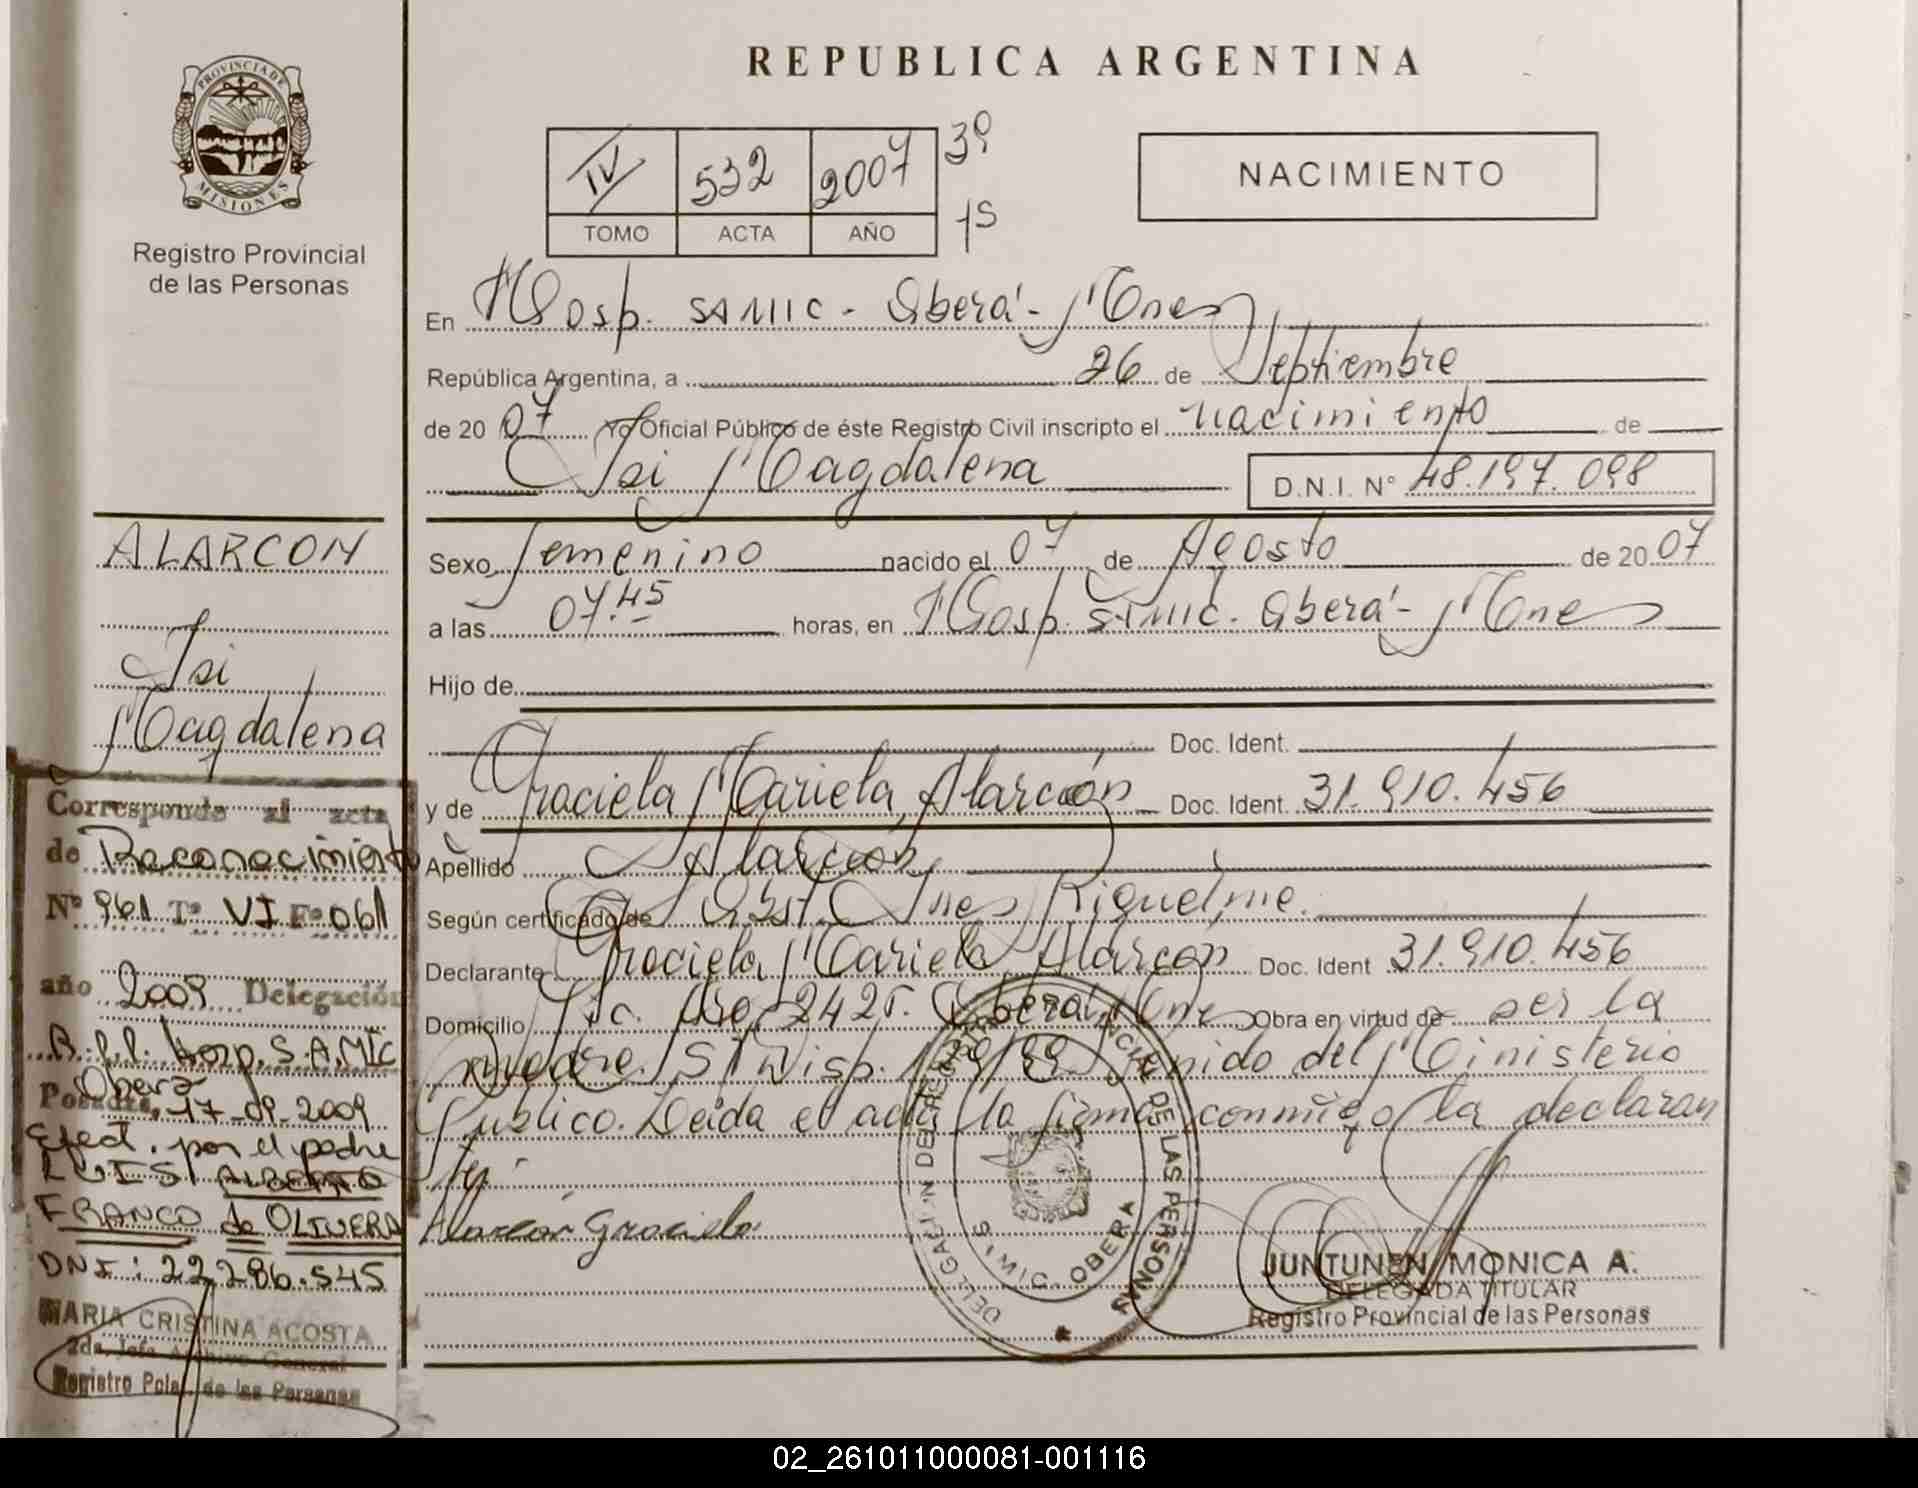 PROVINCIA DE
MISIONES
Registro Provincial
de las Personas
REPUBLICA ARGENTINA
IV 532 2007 3º
TOMO ACTA AÑO 1S
NACIMIENTO
En Hosp. SAMIC - Oberá - Mnes
República Argentina, a 26 de Septiembre
de 20 07 Yo Oficial Público de éste Registro Civil inscripto el nacimiento de
Isi Magdalena D.N.I. Nº 48.197.098
Sexo femenino nacido el 07 de Agosto de 20 07
a las 07.45 horas, en Hosp. SAMIC. Oberá - Mnes
Hijo de
Doc. Ident.
y de Graciela Mariela Alarcón Doc. Ident. 31.910.456
Apellido Alarcón
Según certificado de Obst. Ines Riquelme.
Declarante Graciela Mariela Alarcón Doc. Ident 31.910.456
Domicilio Oberá Mnes Obra en virtud de ser la
madre. S/ Disp. del Ministerio
Público. Leída el acta la firma conmigo la declaran
te.
Alarcón Graciela
DELEGACIÓN DE LAS PERSONAS
SAMIC. OBERA
JUNTUNEN, MONICA A.
DELEGADA TITULAR
Registro Provincial de las Personas
ALARCON
Isi
Magdalena
Corresponde al acta
de Reconocimiento
Nº 961 Tº VI Fº 061
año 2009 Delegación
Hosp. S.A.MIC
Oberá
Posadas, 17-09-2009
Efect. por el padre
LUIS ALBERTO
FRANCO de OLIVERA
DNI: 22.286.545
MARIA CRISTINA ACOSTA
2da. Jefa Archivo General
Registro Pcial. de las Personas
02_261011000081-001116